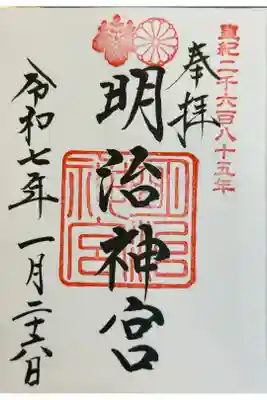 皇紀二千六百八十五年
奉拝
明治神宮
明治神宮
令和七年 一月二十六日